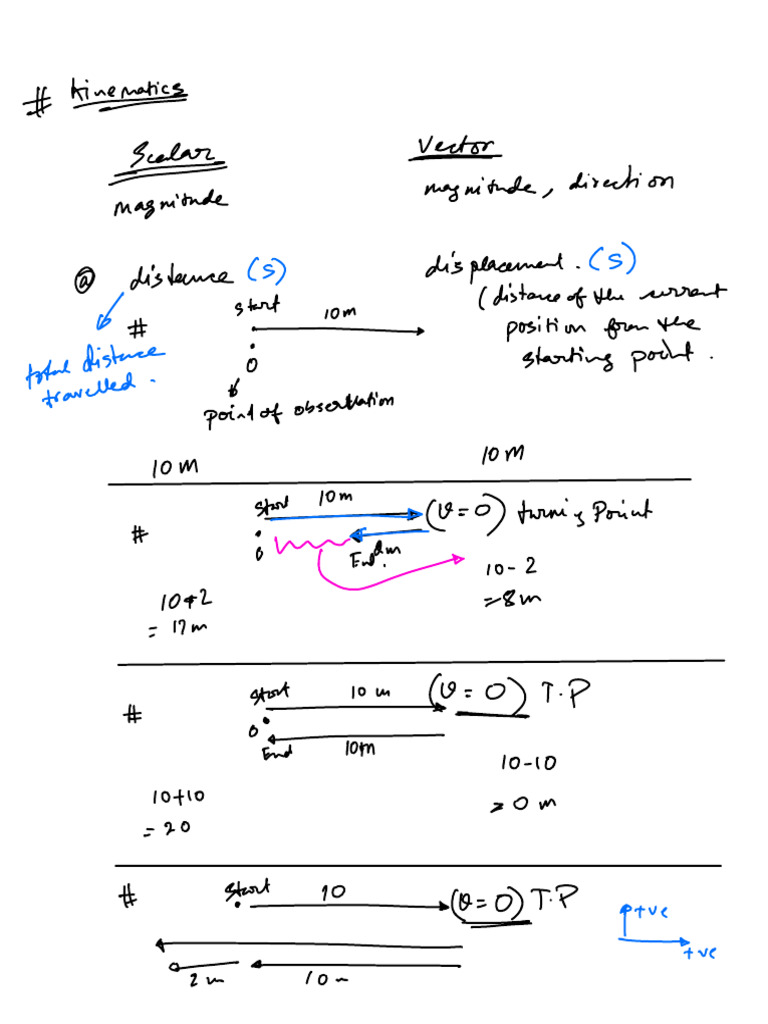 # Kinematics
Scalar
Vector
magnitude
magnitude, direction
@ distance (s)
displacement. (s)
(distance of the current
position from the
starting point.
total distance
travelled.
#
start
10m
0
point of observation
10 M
10 M
#
start
10m
(v=0) turning Point
0
End.
2m
10+2
= 12m
10-2
= 8m
#
start
10 m
(v=0) T.P
0
End
10m
10+10
= 20
10-10
= 0 m
#
start
10
(v=0) T.P
+ve
+ve
2 m
10 m